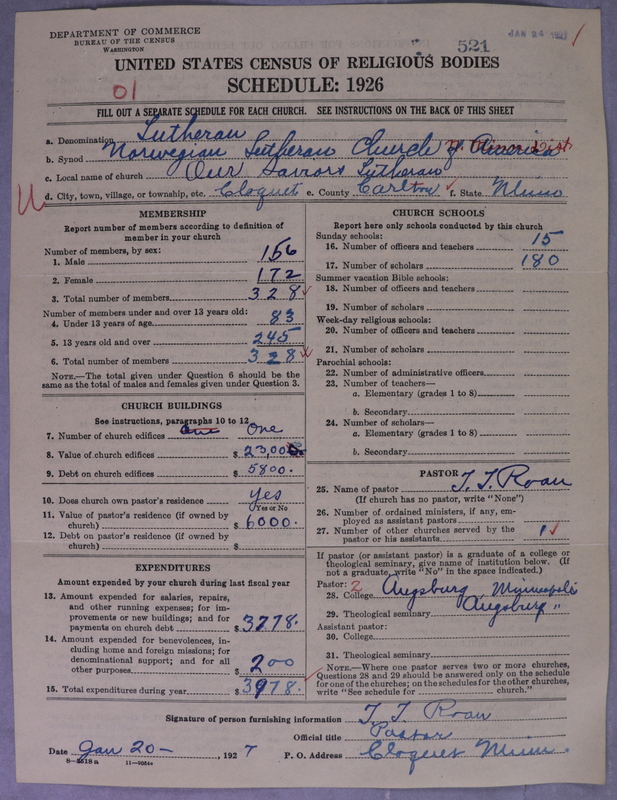 DEPARTMENT OF COMMERCE
BUREAU OF THE CENSUS
WASHINGTON
521
JAN 24
UNITED STATES CENSUS OF RELIGIOUS BODIES
SCHEDULE: 1926
01
FILL OUT A SEPARATE SCHEDULE FOR EACH CHURCH. SEE INSTRUCTIONS ON THE BACK OF THIS SHEET
a. Denomination Lutheran
b. Synod Norwegian Lutheran Church of America
c. Local name of church Our Saviors Lutheran
U d. City, town, village, or township, etc. Cloquet e. County Carlton f. State Minn
MEMBERSHIP
Report number of members according to definition of
member in your church
Number of members, by sex:
1. Male 156
2. Female 172
3. Total number of members 328
Number of members under and over 13 years old:
4. Under 13 years of age 83
5. 13 years old and over 245
6. Total number of members 328
NOTE.—The total given under Question 6 should be the
same as the total of males and females given under Question 3.
CHURCH BUILDINGS
See instructions, paragraphs 10 to 12
7. Number of church edifices One
8. Value of church edifices $ 23,000.
9. Debt on church edifices $ 5800.
10. Does church own pastor's residence yes
Yes or No
11. Value of pastor's residence (if owned by
church) $ 6000.
12. Debt on pastor's residence (if owned by
church) $
EXPENDITURES
Amount expended by your church during last fiscal year
13. Amount expended for salaries, repairs,
and other running expenses; for im-
provements or new buildings; and for
payments on church debt $ 3778.
14. Amount expended for benevolences, in-
cluding home and foreign missions; for
denominational support; and for all
other purposes $ 200
15. Total expenditures during year $ 3978.
CHURCH SCHOOLS
Report here only schools conducted by this church
Sunday schools:
16. Number of officers and teachers 15
17. Number of scholars 180
Summer vacation Bible schools:
18. Number of officers and teachers
19. Number of scholars
Week-day religious schools:
20. Number of officers and teachers
21. Number of scholars
Parochial schools:
22. Number of administrative officers
23. Number of teachers—
a. Elementary (grades 1 to 8)
b. Secondary
24. Number of scholars—
a. Elementary (grades 1 to 8)
b. Secondary
PASTOR
25. Name of pastor T. T. Roan
(If church has no pastor, write "None")
26. Number of ordained ministers, if any, em-
ployed as assistant pastors
27. Number of other churches served by the
pastor or his assistants 1
If pastor (or assistant pastor) is a graduate of a college or
theological seminary, give name of institution below. (If
not a graduate, write "No" in the space indicated.)
Pastor: 2
28. College Augsburg, Minneapolis
29. Theological seminary Augsburg "
Assistant pastor:
30. College
31. Theological seminary
NOTE.—Where one pastor serves two or more churches,
Questions 28 and 29 should be answered only on the schedule
for one of the churches; on the schedules for the other churches,
write "See schedule for church."
Signature of person furnishing information T. T. Roan
Official title Pastor
Date Jan 20 - , 1927 P. O. Address Cloquet Minn.
8—5518a 11—9054